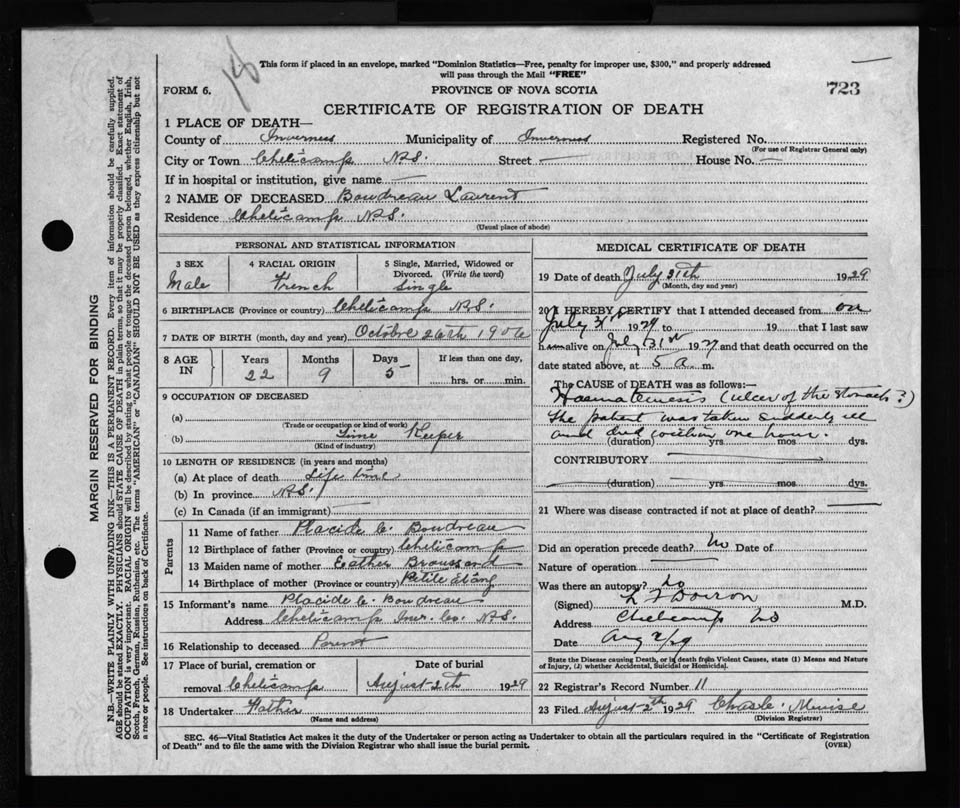 This form if placed in an envelope, marked "Dominion Statistics—Free, penalty for improper use, $300," and properly addressed
will pass through the Mail "FREE"
723
FORM 6.
PROVINCE OF NOVA SCOTIA
CERTIFICATE OF REGISTRATION OF DEATH
1 PLACE OF DEATH—
County of Inverness Municipality of Inverness Registered No.
(For use of Registrar General only)
City or Town Cheticamp N.S. Street — House No. —
If in hospital or institution, give name —
2 NAME OF DECEASED Boudreau Laurent
Residence Cheticamp N.S.
(Usual place of abode)
PERSONAL AND STATISTICAL INFORMATION
3 SEX
Male
4 RACIAL ORIGIN
French
5 Single, Married, Widowed or
Divorced. (Write the word)
Single
6 BIRTHPLACE (Province or country) Cheticamp N.S.
7 DATE OF BIRTH (month, day and year) Octobre 26th 1906
8 AGE
IN
Years
22
Months
9
Days
5
If less than one day,
hrs. or min.
9 OCCUPATION OF DECEASED
(a)
(Trade or occupation or kind of work)
(b) Time Keeper
(Kind of industry)
10 LENGTH OF RESIDENCE (in years and months)
(a) At place of death Life time
(b) In province N.S.
(c) In Canada (if an immigrant) —
Parents
11 Name of father Placide C. Boudreau
12 Birthplace of father (Province or country) Cheticamp
13 Maiden name of mother Esther Broussard
14 Birthplace of mother (Province or country) Petite Etang
15 Informant's name Placide C. Boudreau
Address Cheticamp Inv. Co. N.S.
16 Relationship to deceased Parent
17 Place of burial, cremation or
removal Cheticamp
Date of burial
August 2th 1929
18 Undertaker Father
(Name and address)
MEDICAL CERTIFICATE OF DEATH
19 Date of death July 31th 1929
(Month, day and year)
20 I HEREBY CERTIFY that I attended deceased from on
July 31st 1929 to 19 that I last saw
h alive on July 31st 1929 and that death occurred on the
date stated above, at 5 a. m.
The CAUSE of DEATH was as follows:—
Haematemesis (ulcer of the stomach?)
The patient was taken suddenly ill
and died within one hour.
(duration) yrs. mos. dys.
CONTRIBUTORY
(duration) yrs. mos. dys.
21 Where was disease contracted if not at place of death? —
Did an operation precede death? No Date of
Nature of operation —
Was there an autopsy? No
(Signed) Doiron M.D.
Address Cheticamp NS
Date Aug 2/29
State the Disease causing Death, or in death from Violent Causes, state (1) Means and Nature
of Injury, (2) whether Accidental, Suicidal or Homicidal.
22 Registrar's Record Number 11
23 Filed August 2th 1929 Chas. L.
(Division Registrar)
SEC. 46—Vital Statistics Act makes it the duty of the Undertaker or person acting as Undertaker to obtain all the particulars required in the "Certificate of Registration
of Death" and to file the same with the Division Registrar who shall issue the burial permit.
(OVER)
MARGIN RESERVED FOR BINDING
N.B—WRITE PLAINLY WITH UNFADING INK—THIS IS A PERMANENT RECORD. Every item of information should be carefully supplied.
AGE should be stated EXACTLY. PHYSICIANS should STATE CAUSE OF DEATH in plain terms, so that it may be properly classified. Exact statement of
OCCUPATION is very important. RACIAL ORIGIN will be described by stating to what people or tongue the deceased person belonged, whether English, Irish,
Scotch, French, German, Russian, Ruthenian, etc. The terms "AMERICAN" or "CANADIAN" SHOULD NOT BE USED as they express citizenship but not
a race or people. See instructions on back of Certificate.